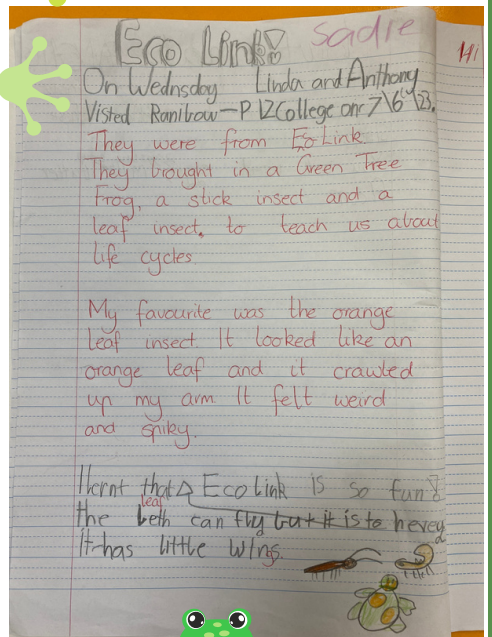 Eco Link!
Sadie
Hi
On Wednsday Linda and Anthony
Visted Ranibow-P12 College on 7\6\23.
They were from EcoLink.
They brought in a Green Tree
Frog, a stick insect and a
leaf insect, to teach us about
life cycles
My favourite was the orange
leaf insect. It looked like an
orange leaf and it crawled
up my arm. It felt weird
and spiky.
I lernt that Eco Link is so fun!
leaf
the beth can fly but it is to hevey
It has little wings.